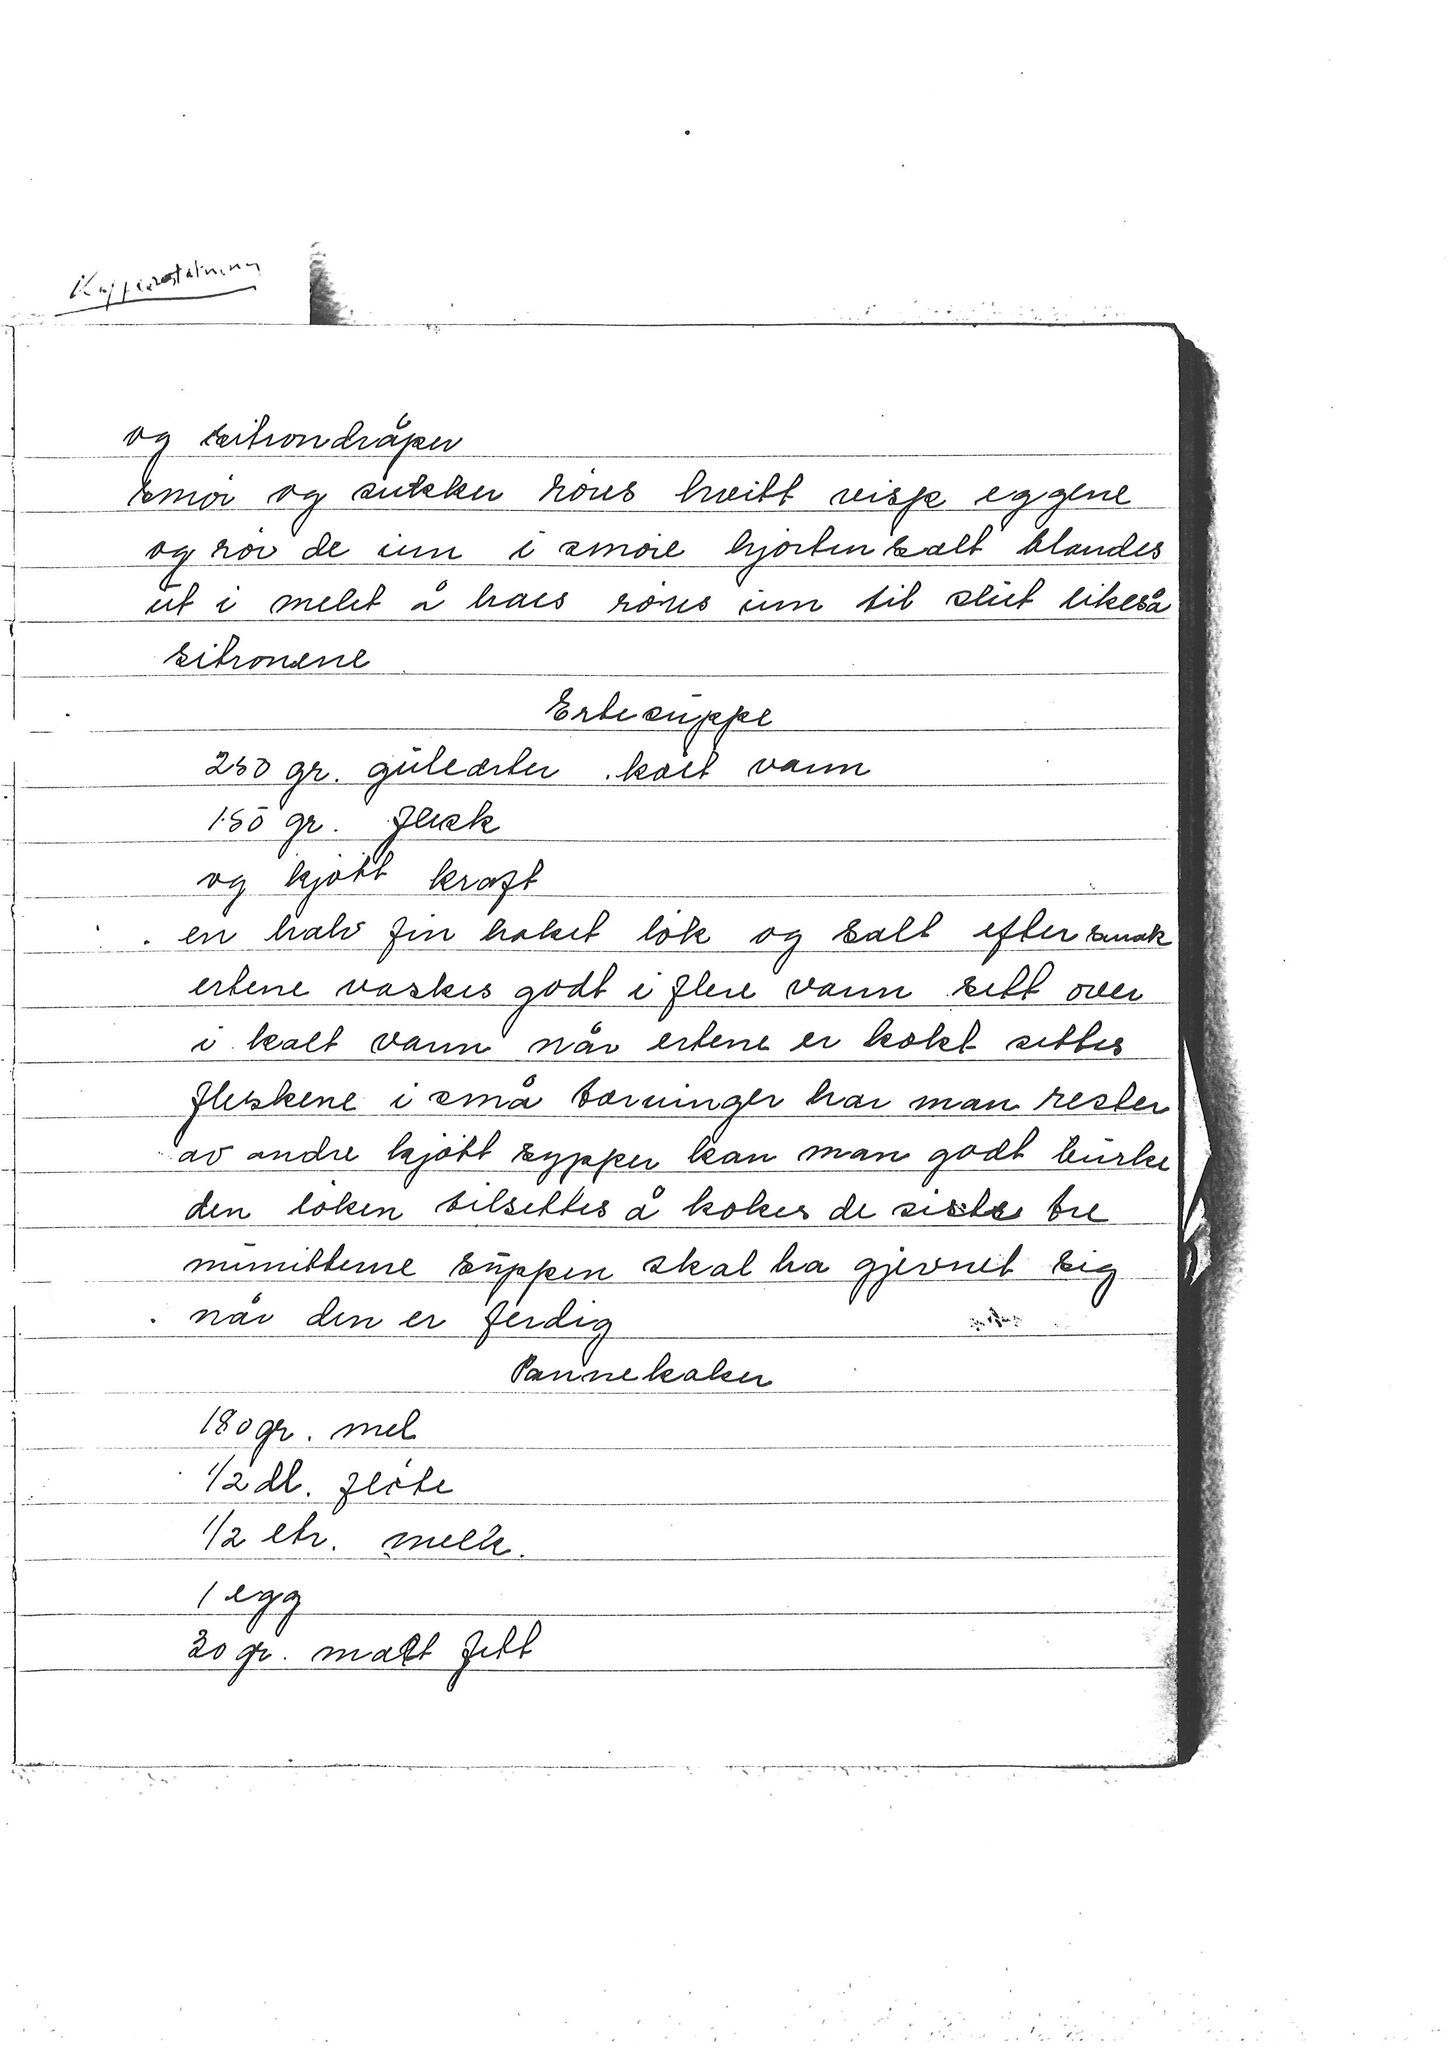 Kaffierstatning
og sitrondråper
smör og sukker röres hvitt visp eggene
og rör de inn i smöre hjortensalt blandes
ut i melet å haes röres inn til slut likeså
sitronene
Ertesuppe
250 gr. guleerter . kalt vann
150 gr. flesk
og kjött kraft
en halv fin haket lök og salt efter smak
ertene vaskes godt i flere vann sett over
i kalt vann når ertene er kokt settes
fleskene i små tærninger har man rester
av andre kjött sypper kan man godt burke
den löken tilsettes å kokes de siste tre
minutterne suppen skal ha gjevnet sig
når den er ferdig
Pannekaker
180 gr. mel
1/2 dl. flöte
1/2 ltr. melk.
1 egg
30 gr. matt fett